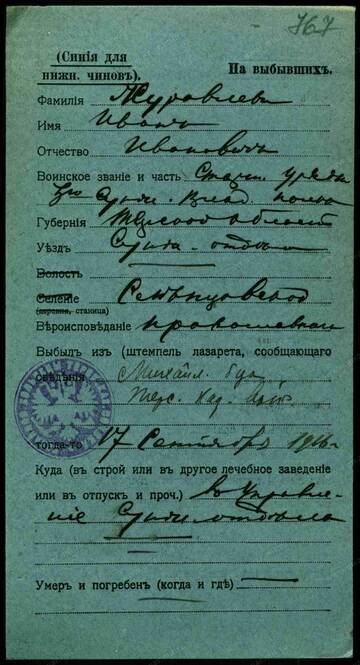 767
(Синія для
нижн. чиновъ).
На выбывшихъ.
Фамилія Журавлевъ
Имя Иванъ
Отчество Ивановичъ
Воинское званіе и часть Старш. уряд.
Сунж. Влад. полка
Губернія Терской области
Уѣздъ Сунж. отдѣла
Волость
Селеніе
(деревня, станица)
вѣроисповѣданіе православнаго
Выбылъ изъ (штемпель лазарета, сообщающаго
свѣдѣнія Михайл.
Терс. Каз.
тогда-то 17 Сентября 1916 г.
Куда (въ строй или въ другое лечебное заведеніе
или въ отпускъ и проч.) въ Управле-
ніе Сунж. отдѣла
Умеръ и погребенъ (когда и гдѣ)